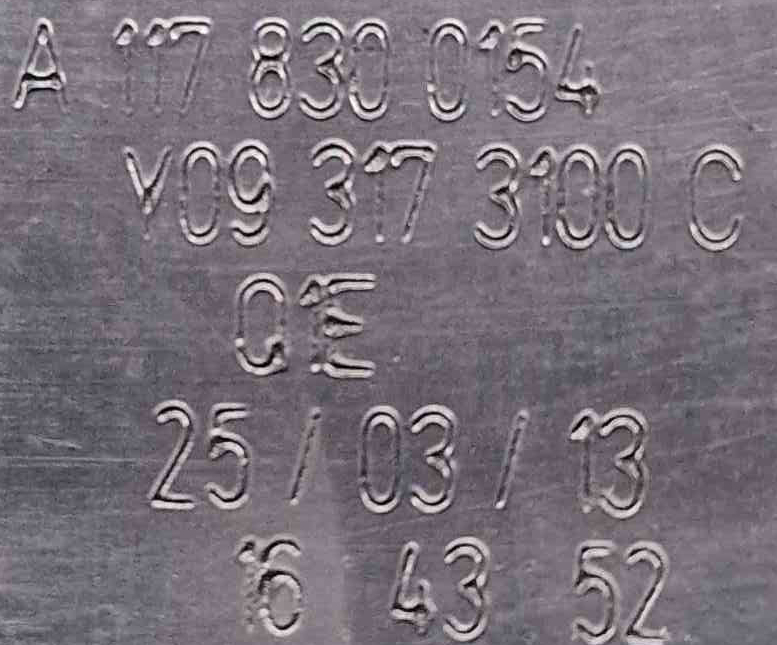 A 117 830 0154
Y09 317 3100 C
Q1E
25 / 03 / 13
16 43 52